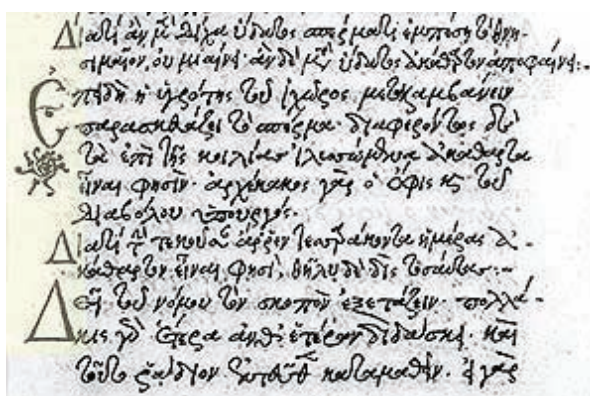 Διατί ἂν μὲν δίχα ὕδατος σπέρματι ἐμπέσῃ τὸ θνη-
σιμαῖον, οὐ μιαίνει· ἂν δὲ μεθ' ὕδατος ἀκάθαρτον ἀποφαίνει:-
Ἐπειδὴ ἡ ὑγρότης τοῦ ἰχῶρος μεταλαμβάνειν
παρασκευάζει τὸ σπέρμα· διαφερόντως δὲ
τὰ ἐπὶ τῆς κοιλίας ἰλυσπώμενα ἀκάθαρτα
εἶναι φησὶν· ἀρχέκακος γὰρ ὁ ὄφις καὶ τοῦ
διαβόλου ὑπουργός.
Διατί τὴν τεκοῦσαν ἄρρεν τεσσαράκοντα ἡμέρας ἀ-
κάθαρτον εἶναι φησὶ, θῆλυ δὲ δὶς τοσαύτας:-
Δεῖ τοῦ νόμου τὸν σκοπὸν ἐξετάζειν· πολλά-
κις γὰρ ἕτερα ἀνθ' ἑτέρων διδάσκει. καὶ
τοῦτο ῥάδιον ἐντεῦθεν καταμαθεῖν. εἰ γὰρ